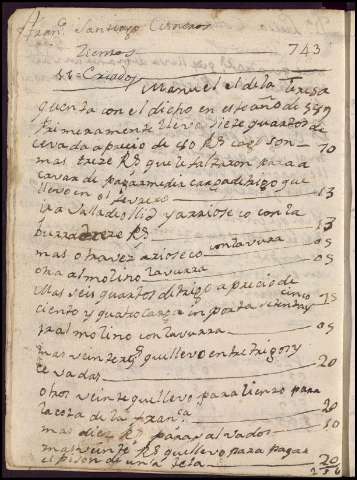 Franco Santiago Cisneros
743
Criados
Manuel el de la Teresa
quenta con el dicho en este año de
Primeramente lleva siete quartos de
cevada a precio de 40 Rs son — 70
mas treze Rs que le faltaron para
pagar media carga de trigo que
llevo en el febrero — 13
ir a Valladollid y a rrioseco con la
burra treze Rs — 13
mas otra vez a rioseco con la vurra — 05
otra al molino la vurra — 05
Mas seis quartos de trigo a precio de
ciento y quatro la carga in porta setenta y cinco — 75
ir al molino con la vurra — 05
mas veinte Rs que llevo entre trigo y
cevada — 20
otros veinte que llevo para lienzo para
la cota de la Franca — 20
mas diez Rs para salvados — 10
mas veinte Rs que llevo para pagar
el pison de una — 20